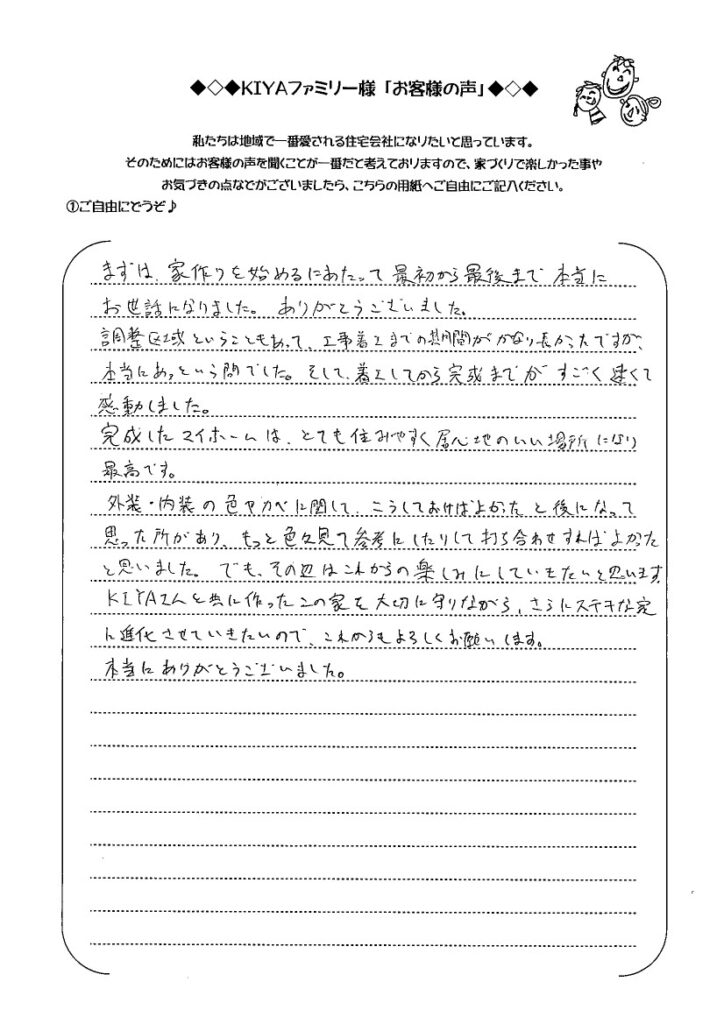 ◆◇◆KIYAファミリー様「お客様の声」◆◇◆
私たちは地域で一番愛される住宅会社になりたいと思っています。
そのためにはお客様の声を聞くことが一番だと考えておりますので、家づくりで楽しかった事や
お気づきの点などがございましたら、こちらの用紙へご自由にご記入ください。
①ご自由にどうぞ♪
まずは、家作りを始めるにあたって最初から最後まで本当に
お世話になりました。ありがとうございました。
調整区域ということもあって、工事着工までの期間がかなり長かったですが、
本当にあっという間でした。そして、着工してから完成までがすごく速くて
感動しました。
完成したマイホームは、とても住みやすく居心地のいい場所になり
最高です。
外装・内装の色やカベに関して、こうしておけばよかったと後になって
思った所があり、もっと色々見て参考にしたりして打ち合わせすればよかった
と思いました。でも、その辺はこれからの楽しみにしていきたいと思います
KIYAさんと共に作ったこの家を大切に守りながら、さらにステキな家
に進化させていきたいので、これからもよろしくお願いします。
本当にありがとうございました。